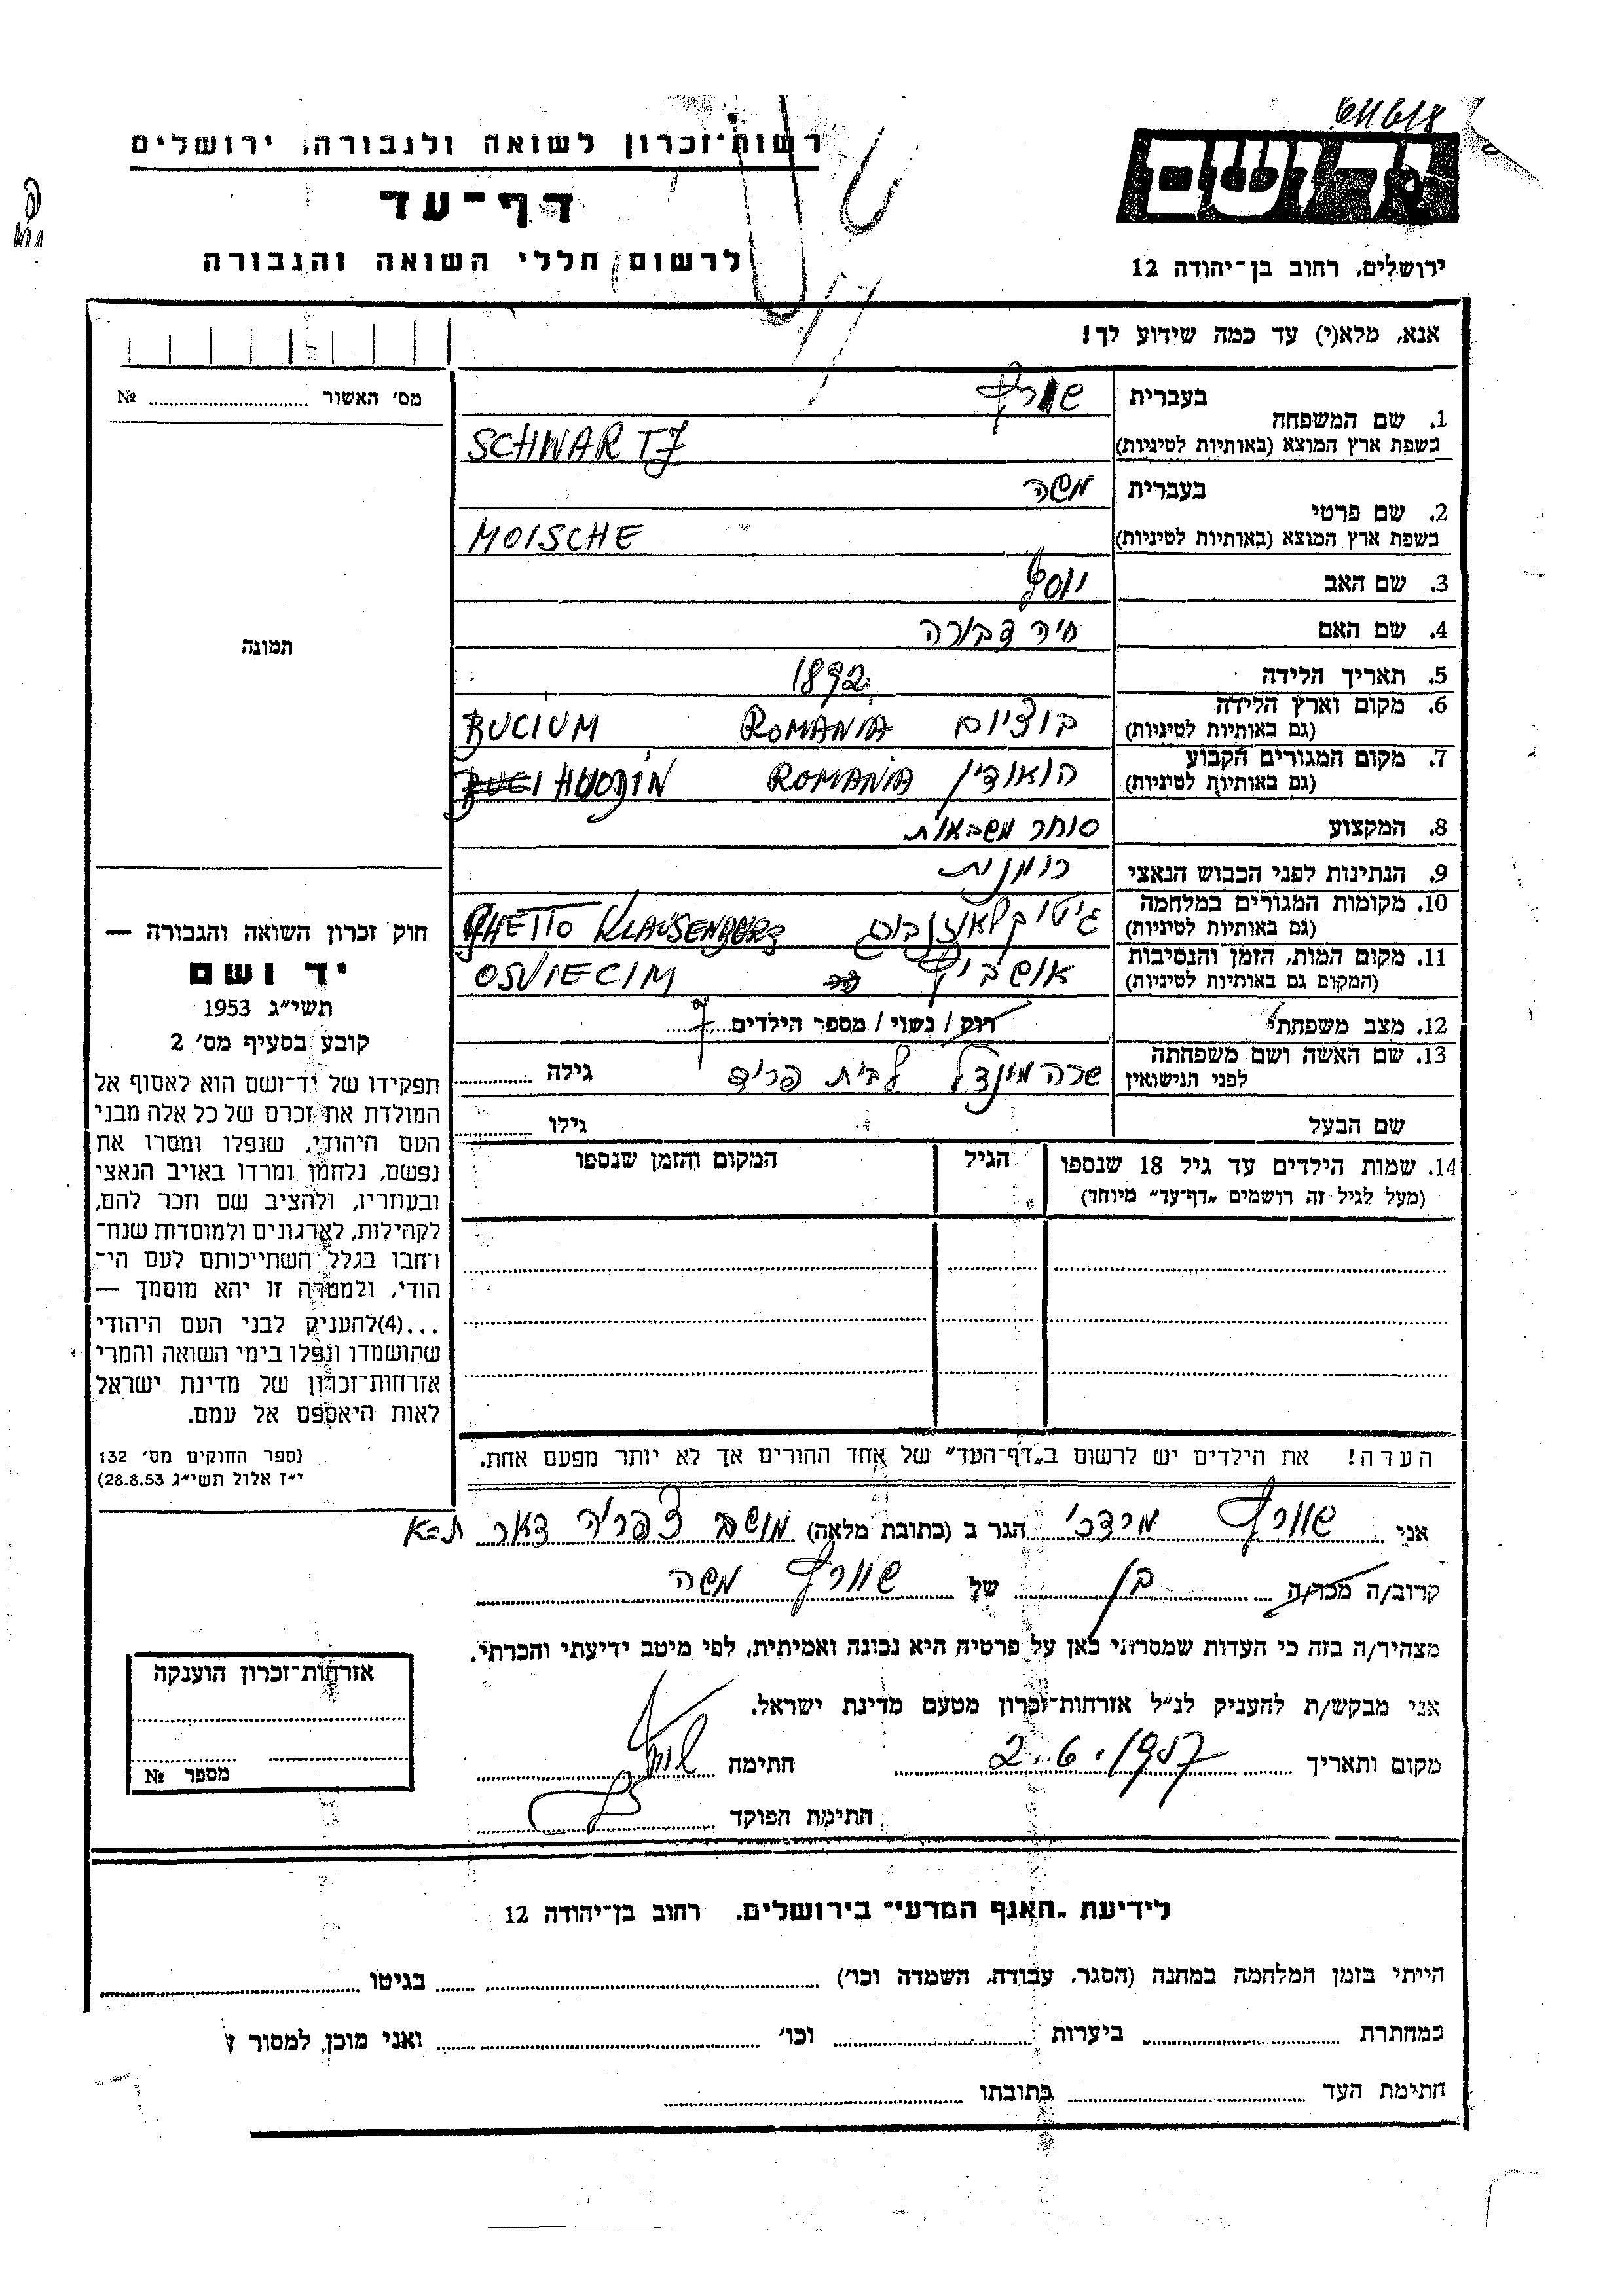 רשות־זכרון לשואה ולגבורה, ירושלים
דף־עד
לרשום חללי השואה והגבורה
ירושלים, רחוב בן־יהודה 12
אנא, מלא(י) עד כמה שידוע לך!
מס׳ האשור № 
תמונה
1. שם המשפחה
בעברית שורץ
בשפת ארץ המוצא (באותיות לטיניות) SCHWARTZ
2. שם פרטי
בעברית משה
בשפת ארץ המוצא (באותיות לטיניות) MOISCHE
3. שם האב יוסף
4. שם האם חיה דבורה
5. תאריך הלידה 1892
6. מקום וארץ הלידה בוציום ROMANIA BUCIUM
(גם באותיות לטיניות)
7. מקום המגורים הקבוע הואודין ROMANIA HUODIN
(גם באותיות לטיניות)
8. המקצוע סוחר תבואות
9. הנתינות לפני הכבוש הנאצי רומנית
10. מקומות המגורים במלחמה גיטו קלאוזנבורג GHETTO KLAUSENBERG
(גם באותיות לטיניות)
11. מקום המות, הזמן והנסיבות אושביץ OSVIECIM
(המקום גם באותיות לטיניות)
12. מצב משפחתי רוק / נשוי / מספר הילדים 7
13. שם האשה ושם משפחתה שרה מינדל לבית פריד גילה
לפני הנישואין
שם הבעל גילו
14. שמות הילדים עד גיל 18 שנספו הגיל המקום והזמן שנספו
(מעל לגיל זה רושמים „דף־עד” מיוחד)
חוק זכרון השואה והגבורה —
יד ושם
תשי״ג 1953
קובע בסעיף מס׳ 2
תפקידו של יד־ושם הוא לאסוף אל
המולדת את זכרם של כל אלה מבני
העם היהודי, שנפלו ומסרו את
נפשם, נלחמו ומרדו באויב הנאצי
ובעוזריו, ולהציב שם וזכר להם,
לקהילות, לארגונים ולמוסדות שנח־
רחבו בגלל השתייכותם לעם הי־
הודי, ולמטרה זו יהא מוסמך —
...(4)להעניק לבני העם היהודי
שהושמדו ונפלו בימי השואה והמרי
אזרחות־זכרון של מדינת ישראל
לאות היאספם אל עמם.
(ספר החוקים מס׳ 132
י״ז אלול תשי״ג 28.8.53)
הערה! את הילדים יש לרשום ב„דף־העד” של אחד ההורים אך לא יותר מפעם אחת.
אני שורץ מרדכי הגר ב (כתובת מלאה) מושב צפריה דאר ת-א
קרוב/ה מכר/ה בן של שורץ משה
מצהיר/ה בזה כי העדות שמסרתי כאן על פרטיה היא נכונה ואמיתית, לפי מיטב ידיעתי והכרתי.
אני מבקש/ת להעניק לנ״ל אזרחות־זכרון מטעם מדינת ישראל.
מקום ותאריך 2.6.1957 חתימה
חתימת הפוקד
אזרחות־זכרון הוענקה
מספר №
לידיעת „האגף המדעי״ בירושלים, רחוב בן־יהודה 12
הייתי בזמן המלחמה במחנה (הסגר, עבודה, השמדה וכו׳) בגיטו
במחתרת ביערות וכו׳ ואני מוכן למסור
חתימת העד כתובתו